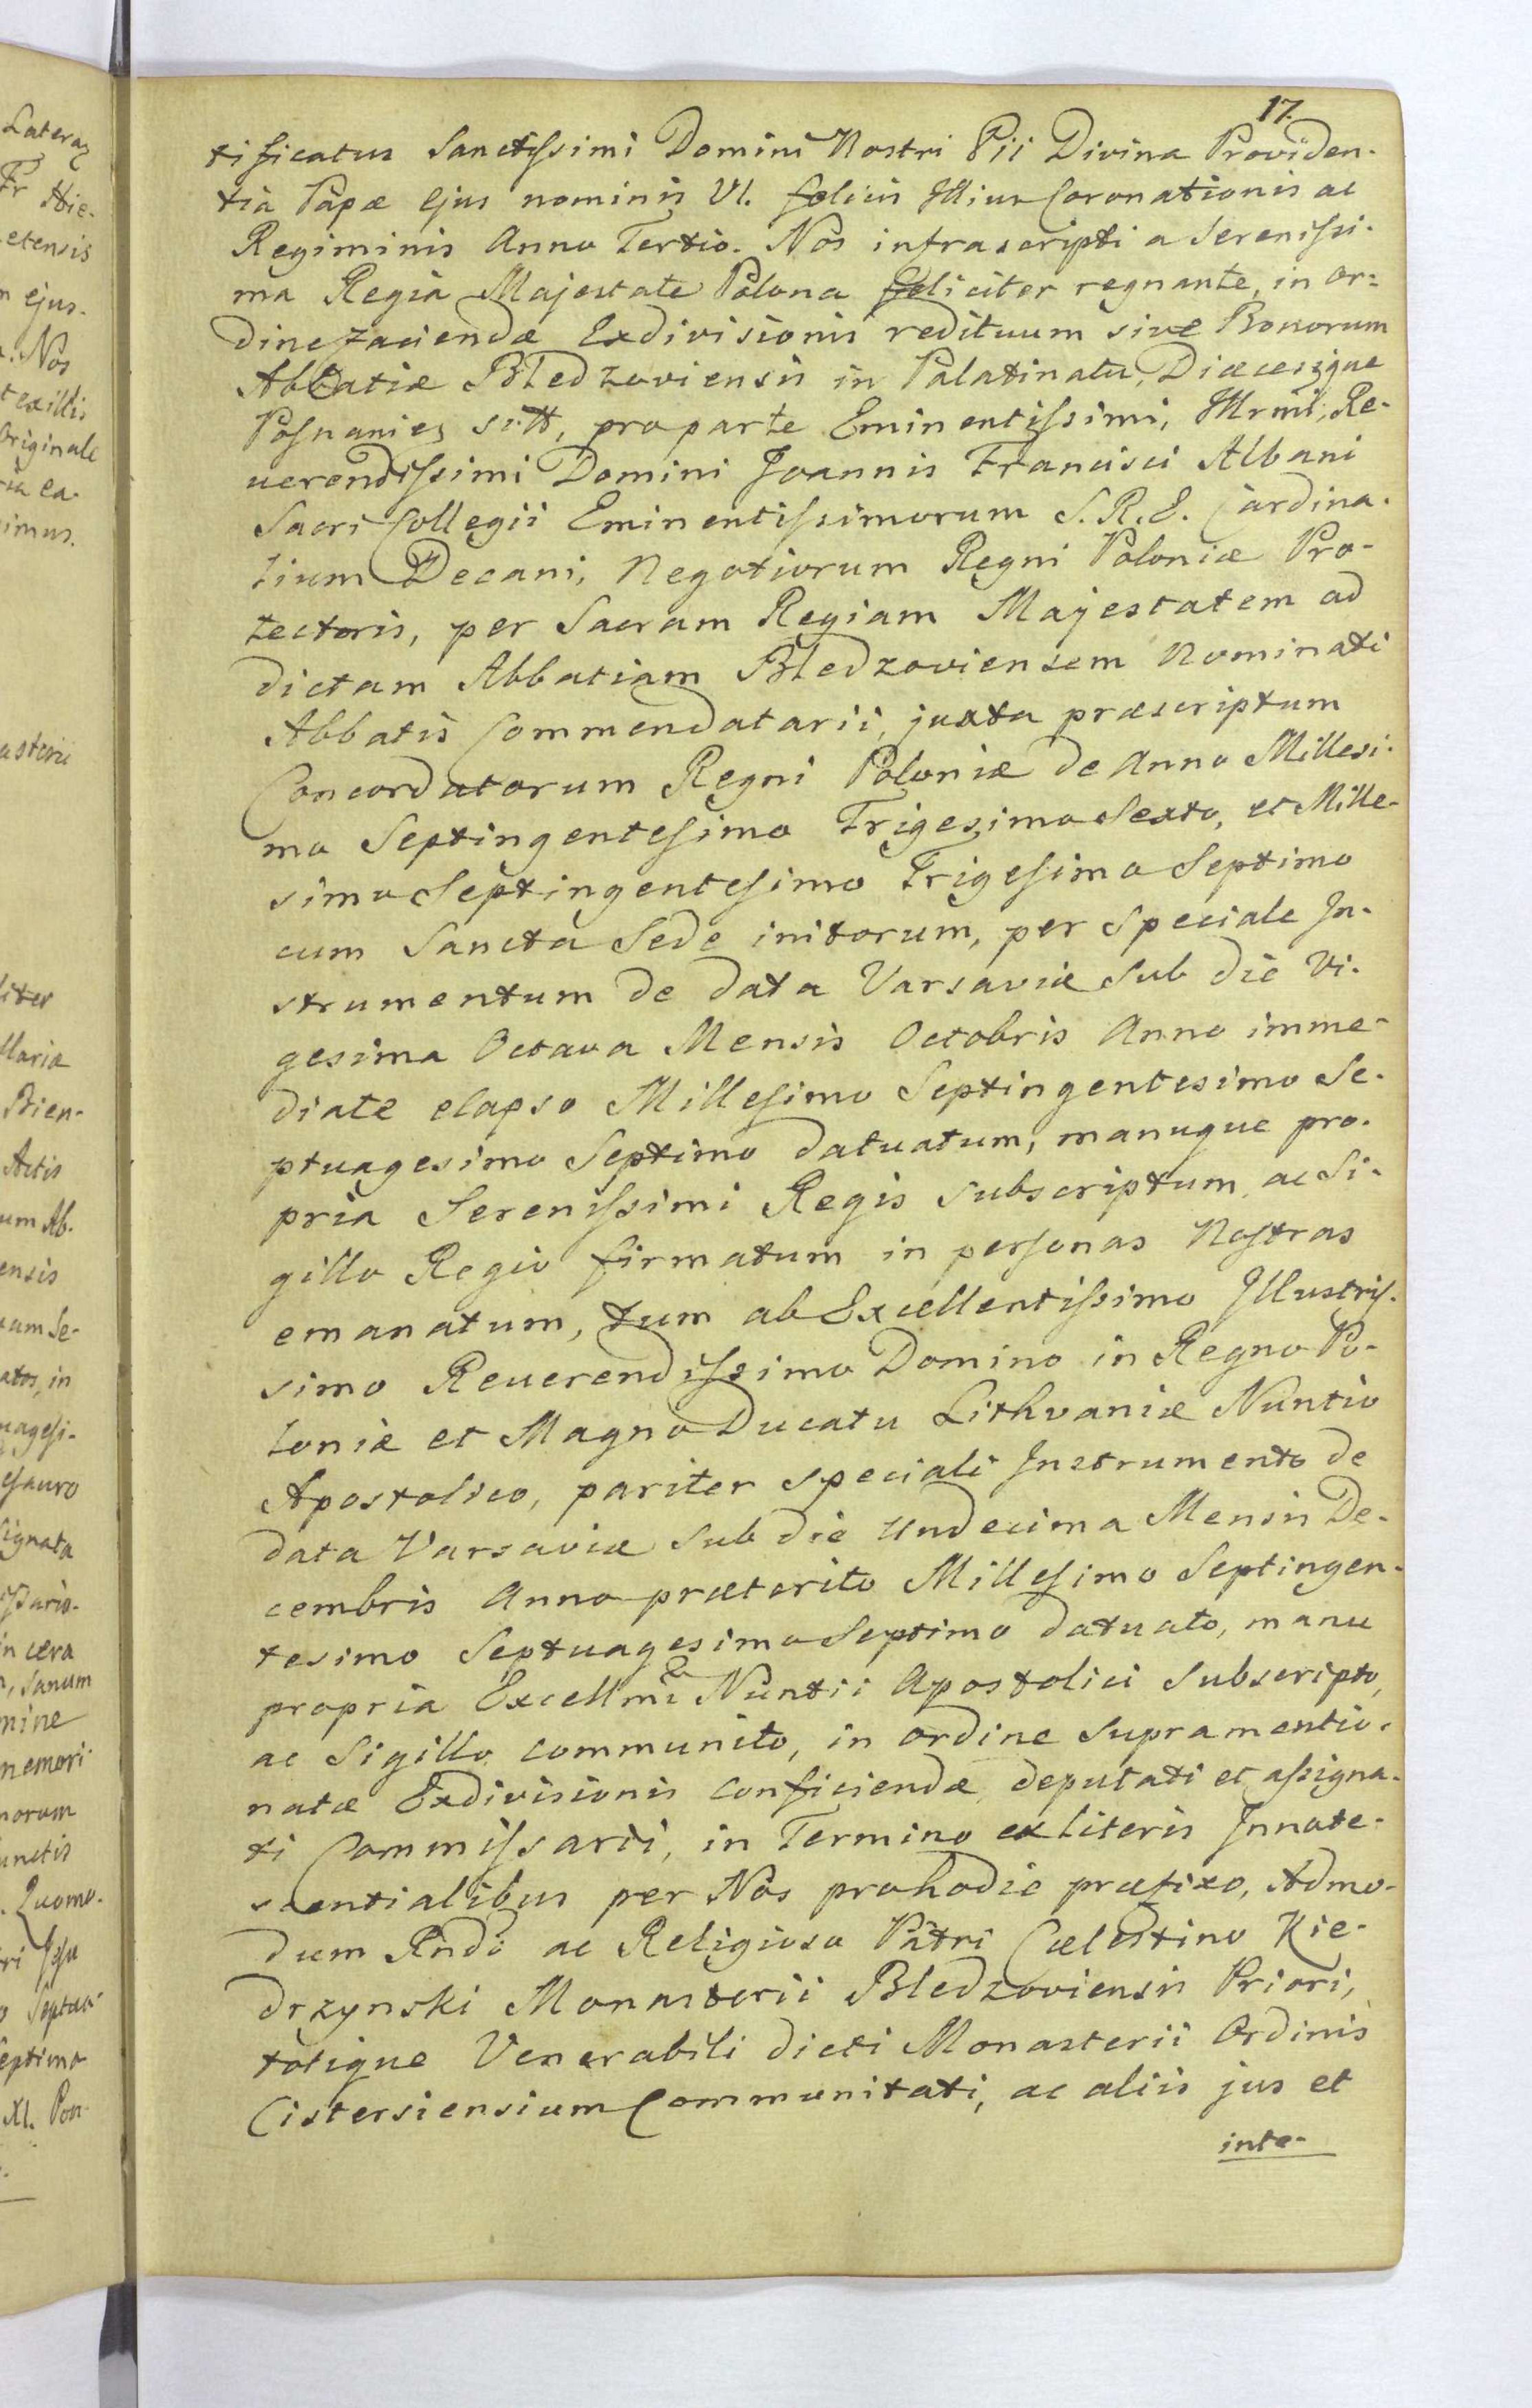 17.
tificatus Sanctissimi Domini Nostri Pii Divina Providen-
tia Papæ Ejus nominis VI. felicis Illius Coronationis ac
Regiminis Anno Tertio. Nos infrascripti a Serenissi-
ma Regia Majestate Polona feliciter regnante, in or-
dine faciendæ Exdivisionis redituum sive Bonorum
Abbatiæ Bledzoviensis in Palatinatu, Diæcesique
pro parte Eminentissimi, Illrmi, Re-
uerendissimi Domini Joannis Francisci Albani
Sacri Collegii Eminentissimorum S. R. E. Cardina-
lium Decani, Negotiorum Regni Poloniæ Pro-
tectoris, per Sacram Regiam Majestatem ad
dictam Abbatiam Bledzoviensem Nominati
Abbatis Commendatarii, juxta præscriptum
Concordatorum Regni Poloniæ de Anno Millesi-
mo Septingentesimo Trigesimo Sexto, et Mille-
simo Septingentesimo Trigesimo Septimo
cum Sancta Sede initorum, per Speciale In-
strumentum de data Varsaviæ Sub die Vi-
gesima Octava Mensis Octobris Anno imme-
diate elapso Millesimo Septingentesimo Se-
ptuagesimo Septimo datuatum, manuque pro-
pria Serenissimi Regis Subscriptum, ac Si-
gillo Regio firmatum in personas Nostras
emanatum, tum ab Excellentissimo Illustris-
simo Reuerendissimo Domino in Regno Po-
loniæ et Magno Ducatu Lithvaniæ Nuntio
Apostolico, pariter Speciali Instrumento de
data Varsaviæ Sub die Undecima Mensis De-
cembris Anno præterito Millesimo Septingen-
tesimo Septuagesimo Septimo datuato, manu
propria Excellmi Nuntii Apostolici Subscripto,
ac Sigillo communito, in ordine Supramentio-
natæ Exdivisionis conficiendæ, deputati et assigna-
ti Commissarii, in Termino ex literis Innote-
scentialibus per Nos pro hodie præfixo, Admo-
dum Rndo ac Religioso Patri Cælestino Kie-
drzynski Monasterii Bledzoviensis Priori,
totique Venerabili dicti Monasterii Ordinis
Cistersiensium Communitati, ac aliis jus et
inte-